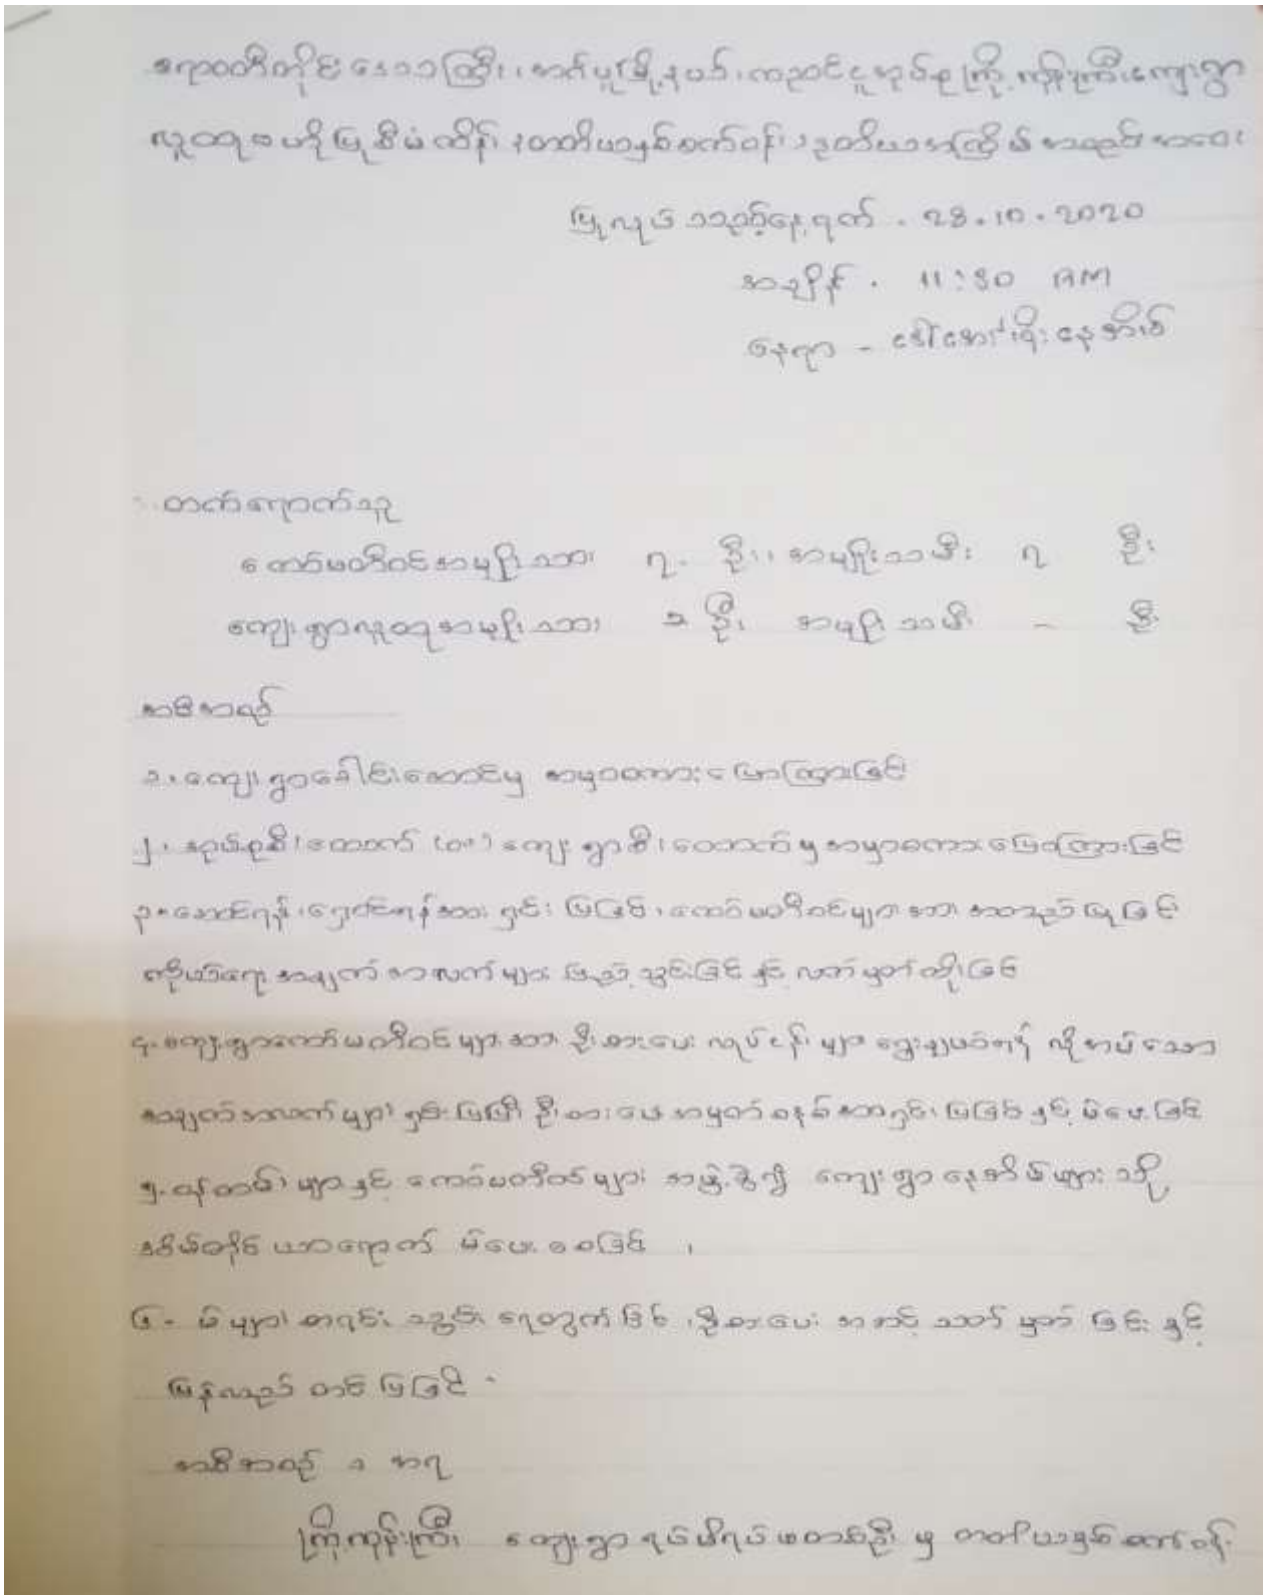 ဧရာဝတီတိုင်းဒေသကြီး၊ ဓာတ်ပုံမြို့နယ်၊ ကညင်ငူအုပ်စု ကြို့ကုန်းကြီးကျေးရွာ
လူထုဗဟိုပြုစီမံကိန်း တတိယနှစ်စက်ဝန်း ဒုတိယအကြိမ် အစည်းအဝေး
ပြုလုပ်သည့်နေ့ရက် - 23.10.2020
အချိန် - 11:30 AM
နေရာ - ဒေါ် နေအိမ်
တက်ရောက်သူ
ကော်မတီဝင်အမျိုးသား ၇ ဦး၊ အမျိုးသမီး ၇ ဦး
ကျေးရွာလူထုအမျိုးသား ၁ ဦး အမျိုးသမီး - ဦး
အစီအစဉ်
၁။ ကျေးရွာခေါင်းဆောင်မှ အမှာစကားပြောကြားခြင်း
၂။ နယ်စုစီးထောက် ကျေးရွာစီးထောက်မှ အမှာစကားပြောကြားခြင်း
၃။ ဆောင်ရန်၊ ရှောင်ရန်အား ရှင်းပြခြင်း၊ ကော်မတီဝင်များအား အတည်ပြုခြင်း
ကိုယ်ရေးအချက်အလက်များ ဖြည့်သွင်းခြင်းနှင့် လက်မှတ်ထိုးခြင်း
၄။ ကျေးရွာကော်မတီဝင်များအား ဦးစားပေး လုပ်ငန်းများ ရွေးချယ်ရန် လိုအပ်သော
အချက်အလက်များ ရှင်းပြပြီး ဦးစားပေးအမှတ်စနစ်အားရှင်းပြခြင်းနှင့် မဲပေးခြင်း
၅။ ဝန်ထမ်းများနှင့် ကော်မတီဝင်များ အဖွဲ့ခွဲ၍ ကျေးရွာနေအိမ်များသို့
အိမ်တိုင်ယာရောက် မဲပေးစေခြင်း ၊
၆။ မဲများ စာရင်းသွင်းရေတွက်ခြင်း ၊ ဦးစားပေး အဆင့်သတ်မှတ်ခြင်းနှင့်
ပြန်လည်တင်ပြခြင်း -
အစီအစဉ် ၁ အရ
ကြို့ကုန်းကြီး ကျေးရွာ ရပ်မိရပ်ဖတစ်ဦးမှ တတိယနှစ်စက်ဝန်း